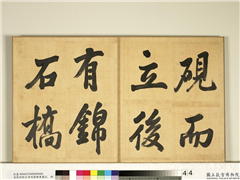 硯而
立後
有錦
石橋
44
國立故宮博物院